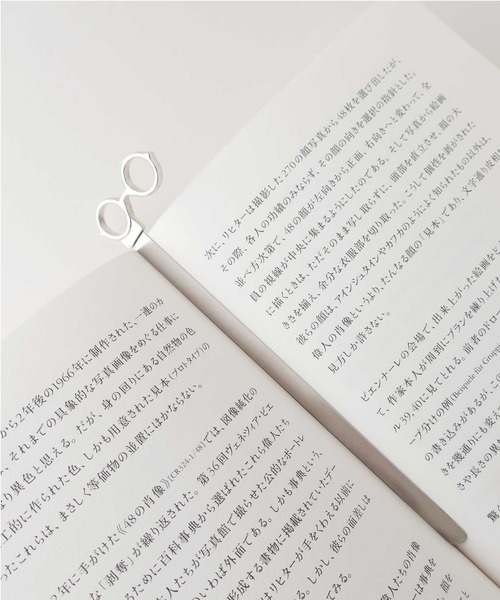 から2年後の1966年に制作された、一連のカ
、それまでの具象的な写真画像をめぐる仕事に
なり異色と思える。だが、身の回りにある自然物の色
工的に作られた色、しかも用意された見本(プロトタイプ)の
ったこれらは、まさしく等価物の並置にほかならない。
2年に手がけた《48の肖像》(CR:324-1/48)では、図像純化の
な「剥奪」が繰り返された。第36回ヴェネツィア・ビエ
るために百科事典から選ばれたこれら偉人たち
た人たちが写真館で撮らせた公的なポートレ
いわば外面である。しかも事典という、
形成する書物に掲載されていたデー
はリヒターが手をくわえる以前に
。しかし、彼らの面差しは
てみる。
次に、リヒターは撮影した270の顔写真から48枚を選び出したが、
その際、各人の功績のみならず、その顔の向きを選択の指針とした。
並べ方次第で、48の顔が左向きから正面、右向きへと変わって、全
員の視線が中央に集まるようにしたのである。そして写真から絵画
に描くときは、ただそのまま写し取らずに、頭部を直立させ、顔の大
きさを揃え、余分な衣服部を切り取った。こうして個性を剥がされた
彼らの顔は、アインシュタインやカフカのようによく知られたもの以外は、
偉人の肖像というより、たんなる顔の「見本」であり、文字通り皮相な
見方しか許さない。
ビエンナーレの会場で、出来上がった絵画をど
て、作家本人が周到にプランを練り上げ
ル39、40に見てとれる。前者のドローイン
ープ分けの例(Beispiele für Grupp
の書き込みがあるがこ
きを幾通りにも変
さや長さの果
偉人たちの肖像
書は事典を